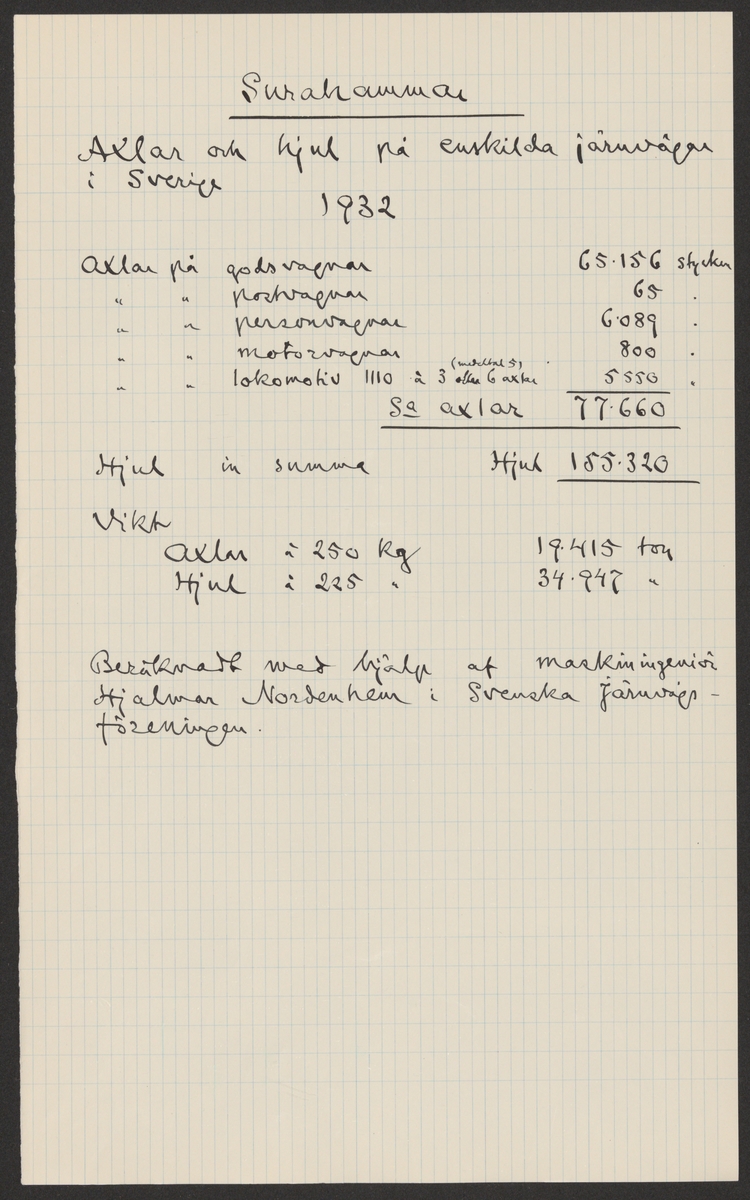 Surahammar
Axlar och hjul på enskilda järnvägar
i Sverige
1932
Axlar på godsvagnar 65.156 stycken
" " postvagnar 65 "
" " personvagnar 6.089 "
" " motorvagnar 800 "
" " lokomotiv 1110 à 3 eller 6 axlar (medeltal 5) 5550 "
Sa axlar 77.660
Hjul in summa Hjul 155.320
Vikt
Axlar à 250 kg 19.415 ton
Hjul à 225 " 34.947 "
Beräknadt med hjälp af maskiningeniör
Hjalmar Nordenhem i Svenska järnvägs-
föreningen.